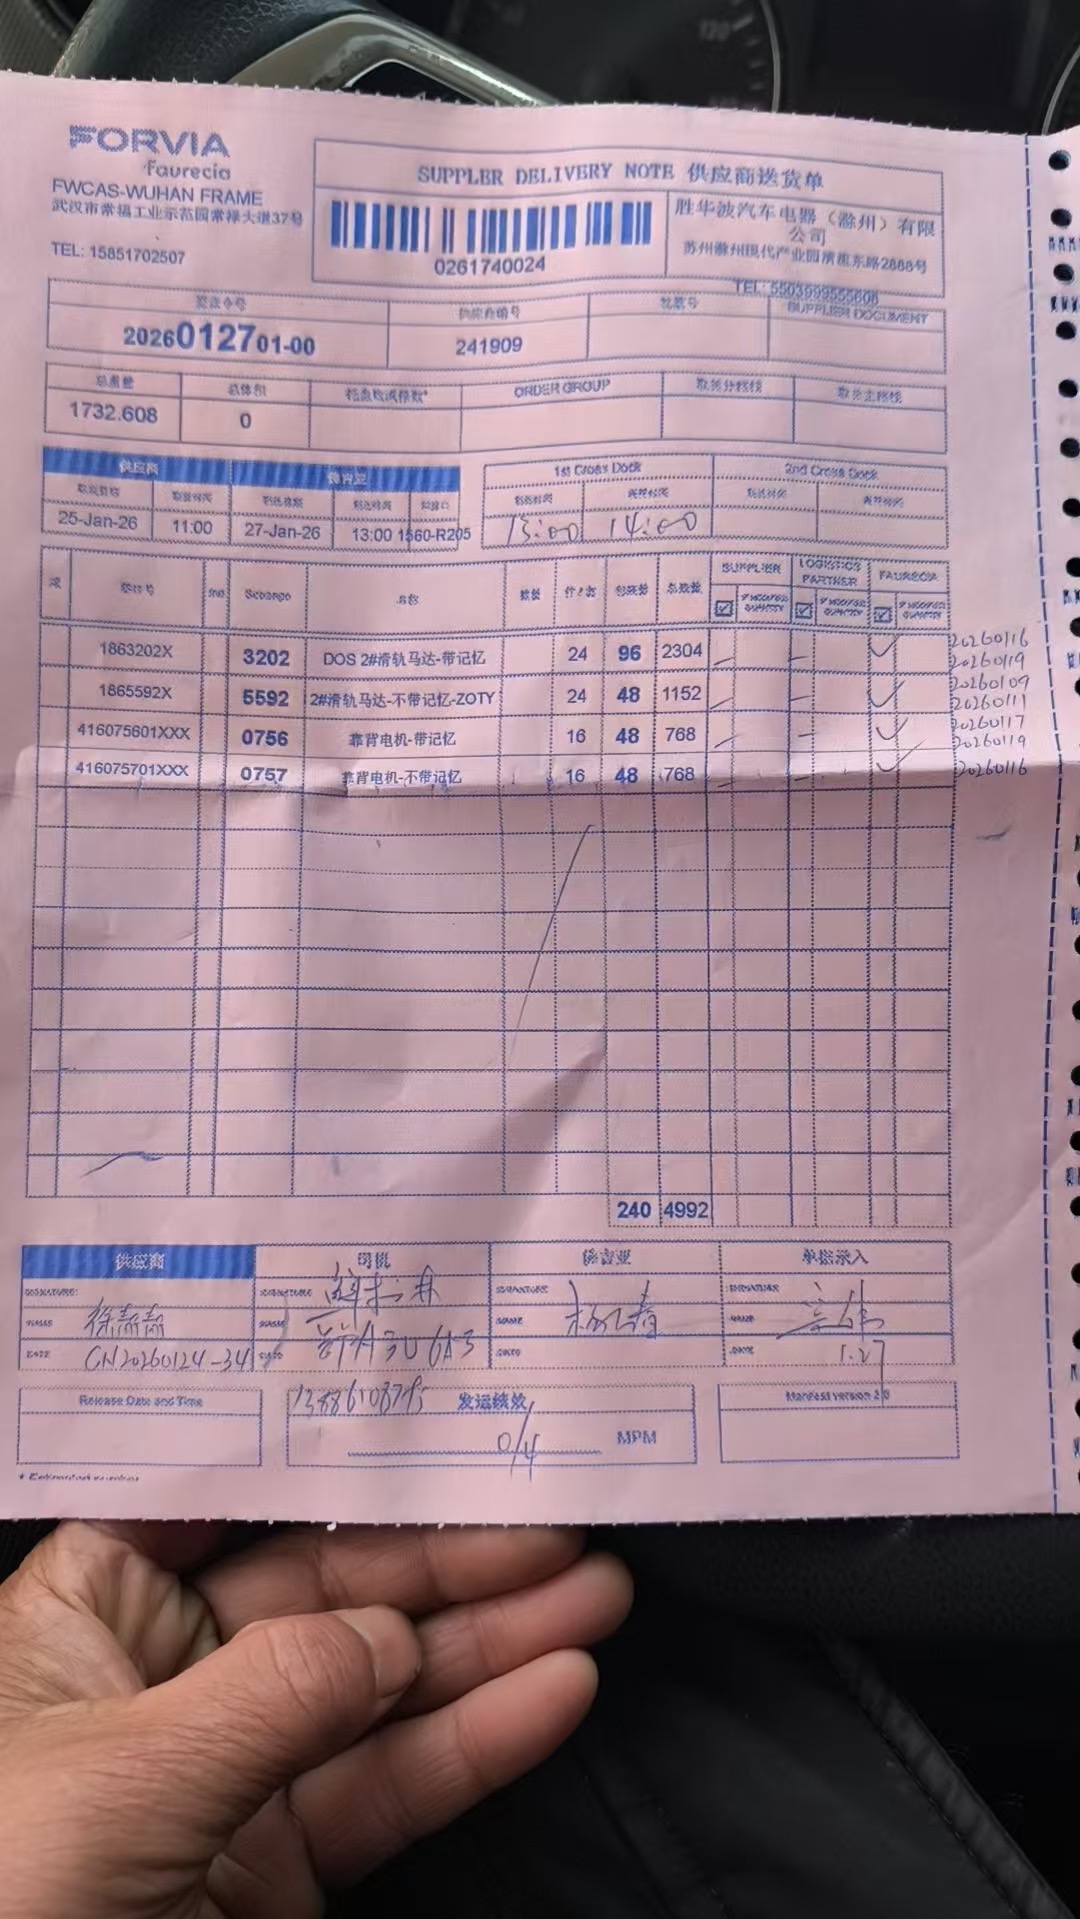 FORVIA
faurecia
FWCAS-WUHAN FRAME
武汉市常福工业示范园常禄大道37号
TEL: 15851702507
SUPPLER DELIVERY NOTE 供应商送货单
0261740024
胜华波汽车电器（滁州）有限
公司
苏州滁州现代产业园清流东路2888号
TEL: 5503999555608
供应商编号 批票号 SUPPLIER DOCUMENT
2026012701-00 241909
总重量 总体积 ORDER GROUP
1732.608 0
供应商 佛吉亚 1st Cross Dock 2nd Cross Dock
25-Jan-26 11:00 27-Jan-26 13:00 1560-R205 13:00 14:00
Sebango 名称 数量 SUPPLIER LOGISTICS PARTNER FAURECIA
1863202X 3202 DOS 2#滑轨马达-带记忆 24 96 2304 20260116
20260119
1865592X 5592 2#滑轨马达-不带记忆-ZOTY 24 48 1152 20260109
20260111
416075601XXX 0756 靠背电机-带记忆 16 48 768 20260117
20260119
416075701XXX 0757 靠背电机-不带记忆 16 48 768 20260116
240 4992
供应商 司机 佛吉亚 单据录入
SIGNATURE: SIGNATURE SIGNATURE SIGNATURE
NAME NAME NAME NAME
DATE CN20260124-34 DATE DATE DATE 1.27
Release Date and Time 发运绩效 Manifest version 2.0
0/4 MPM
* Estimated number